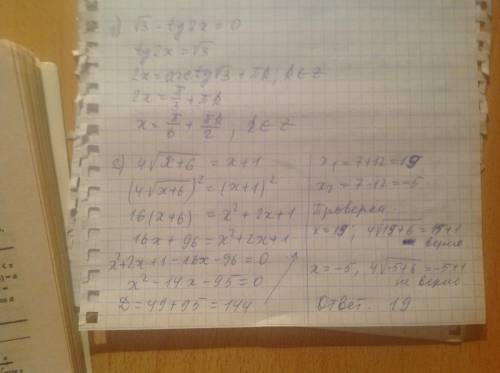 1) √3 - tg2x = 0
tg2x = √3
2x = arctg√3 + πk, k ∈ Z
2x = π/3 + πk
x = π/6 + πk/2, k ∈ Z
2) 4√x+6 = x+1
(4√x+6)² = (x+1)²
16(x+6) = x²+2x+1
16x+96 = x²+2x+1
x²+2x+1-16x-96=0
x²-14x-95=0
D=49+95=144
x₁=7+12=19
x₂=7-12=-5
Проверка
x=19, 4√19+6=19+1
верно
x=-5, 4√-5+6=-5+1
не верно
Ответ. 19